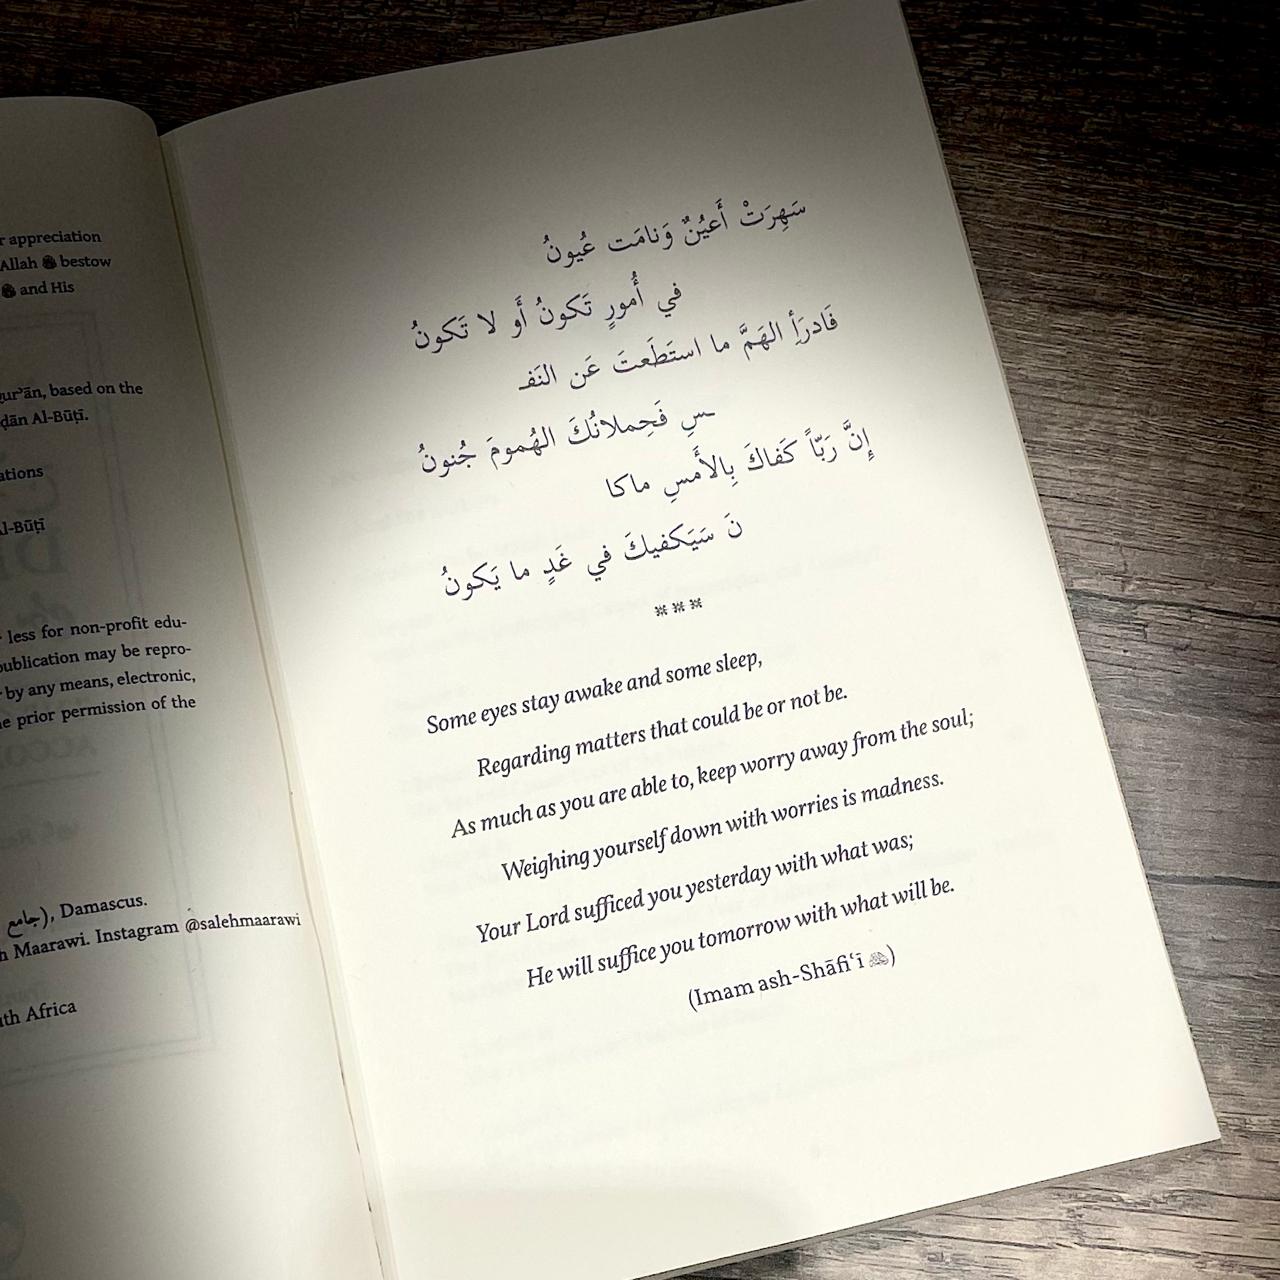 r appreciation
Allah ﷻ bestow
and His
qur’ān, based on the
ḍān Al-Būṭī.
ations
Al-Būṭī
less for non-profit edu-
publication may be repro-
by any means, electronic,
e prior permission of the
(جامع), Damascus.
h Maarawi. Instagram @salehmaarawi
uth Africa
سَهِرَتْ أَعيُنٌ وَنامَت عُيونُ
في أُمورٍ تَكونُ أَو لا تَكونُ
فَادرَأِ الهَمَّ ما استَطَعتَ عَن النَفـ
ـسِ فَحِملانُكَ الهُمومَ جُنونُ
إِنَّ رَبّاً كَفاكَ بِالأَمسِ ماكا
نَ سَيَكفيكَ في غَدٍ ما يَكونُ
***
Some eyes stay awake and some sleep,
Regarding matters that could be or not be.
As much as you are able to, keep worry away from the soul;
Weighing yourself down with worries is madness.
Your Lord sufficed you yesterday with what was;
He will suffice you tomorrow with what will be.
(Imam ash-Shāfi‘ī)